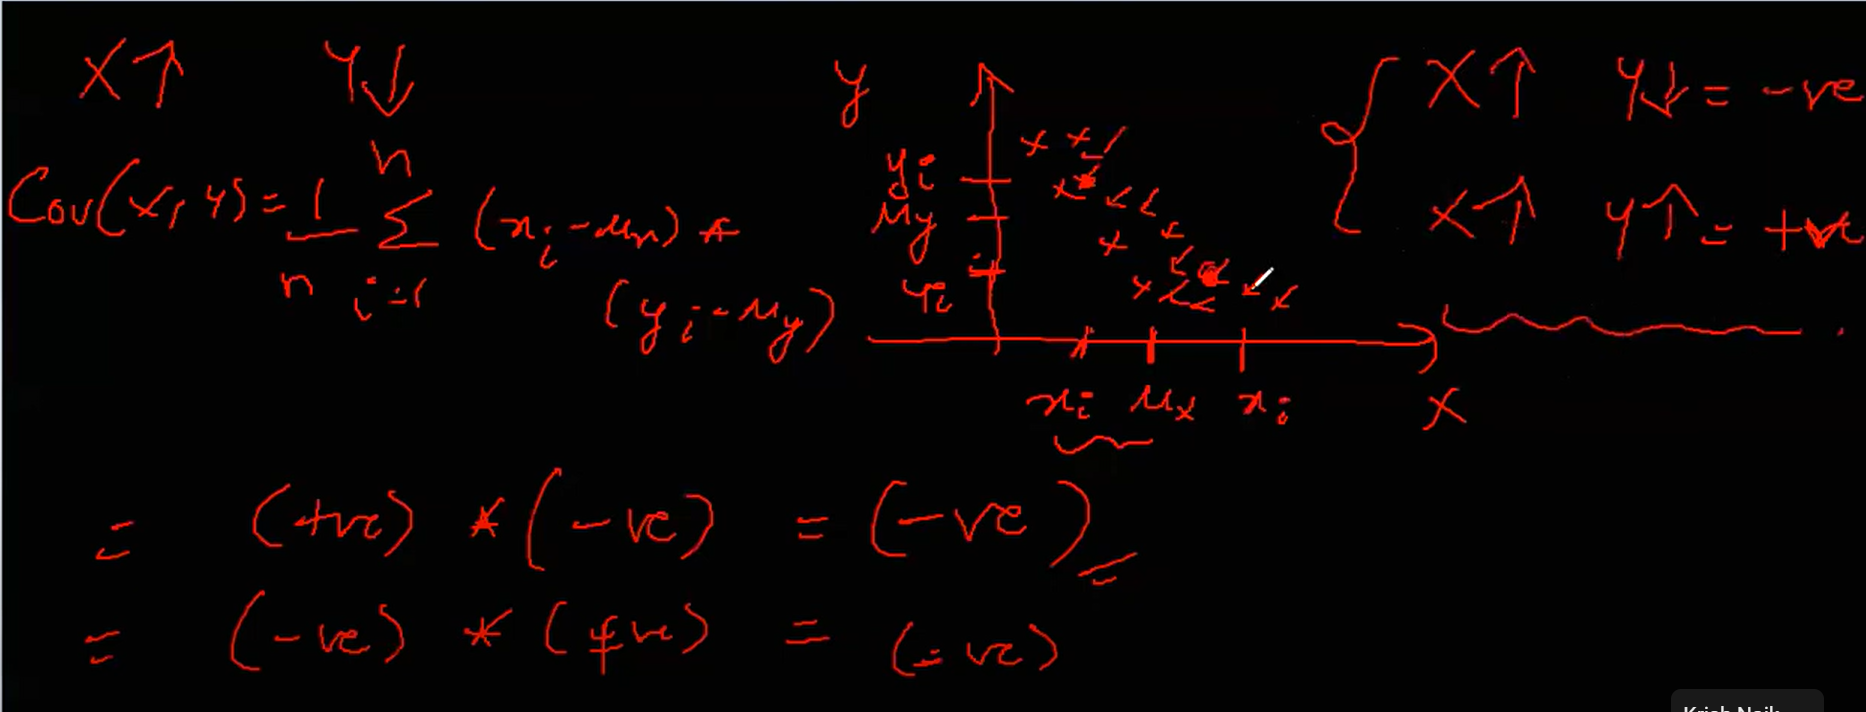 X↑ Y↓
Cov(x, y) = 1/n n Σ i=1 (xi - μx) *
(yi - μy)
y
yi
μy
yi
xi μx xi
X
X↑ Y↓ = -ve
X↑ Y↑ = +ve
= (+ve) * (-ve) = (-ve)
= (-ve) * (+ve) = (-ve)
Krish Naik